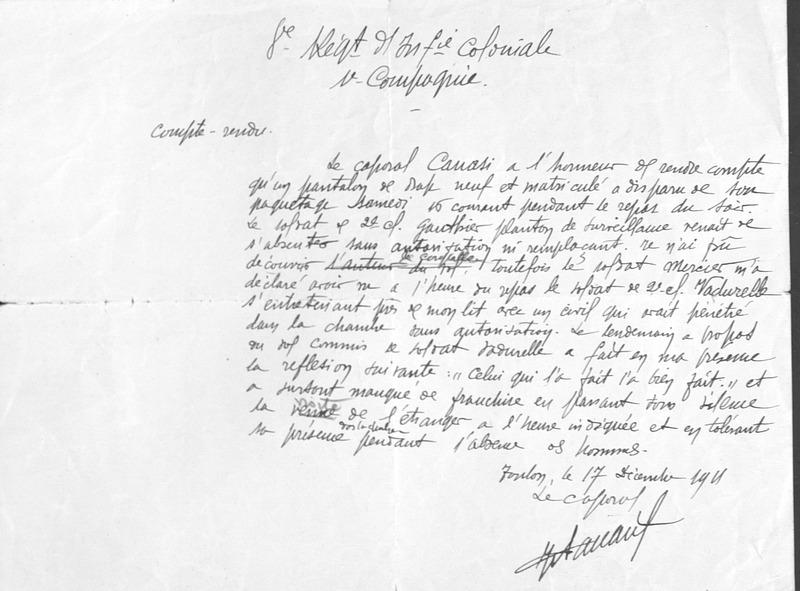 8e Régt d'Infie Coloniale
Compagnie.
Compte-rendu.
Le caporal Canasi a l'honneur de rendre compte
qu'un pantalon de drap neuf et matriculé a disparu de son
paquetage samedi courant pendant le repas du soir.
Le soldat de 2e cl. Gauthier planton de surveillance venait de
s'absenter sans autorisation ni remplaçant. Je n'ai pu
découvrir l'auteur du vol le coupable. Toutefois le soldat Mercier m'a
déclaré avoir vu a l'heure du repas le soldat de 2e cl. Vadurelle
s'entretenant près de mon lit avec un civil qui avait pénétré
dans la chambre sans autorisation. Le lendemain a propos
du vol commis le soldat Vadurelle a fait en ma présence
la reflesion suivante : „ Celui qui l'a fait l'a bien fait. „ et
a surtout manqué de franchise en passant sous silence
la venue de l'étranger a l'heure indiquée et en tolérant
sa présence dans la chambre pendant l'absence des hommes.
Toulon, le 17 Décembre 1911
Le Caporal